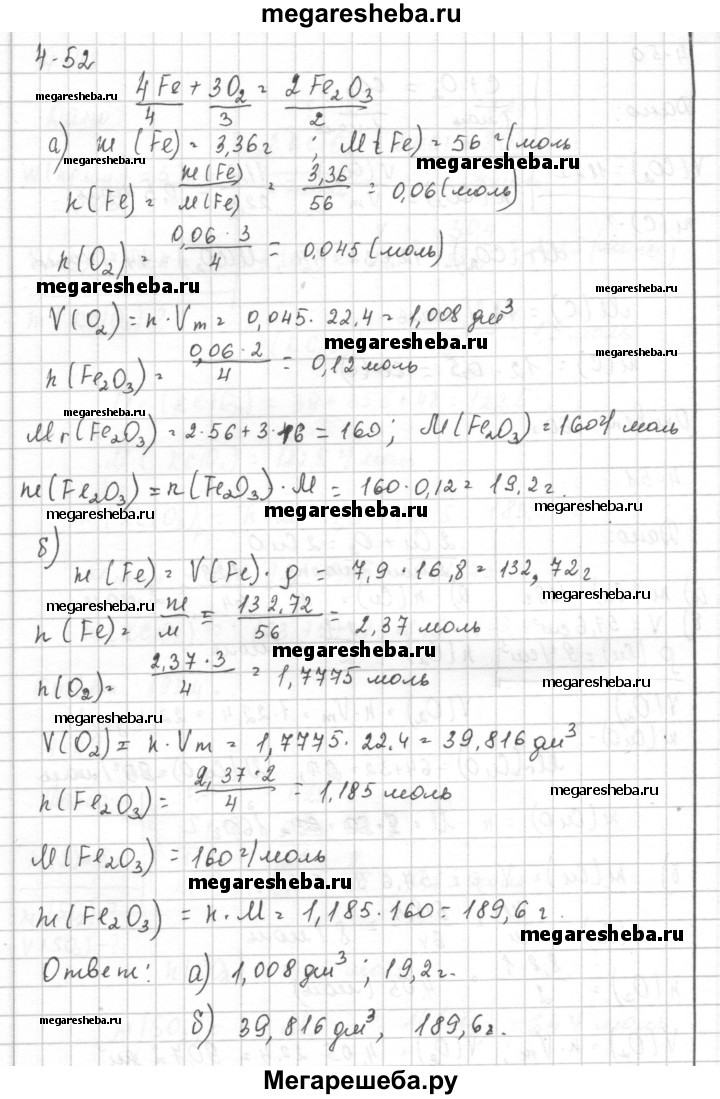 megaresheba.ru
4-52
megaresheba.ru 4Fe + 3O₂ = 2Fe₂O₃ megaresheba.ru
4 3 2
а) m(Fe) = 3,36 г ; M(Fe) = 56 г/моль
megaresheba.ru
n(Fe) = m(Fe)/M(Fe) = 3,36/56 = 0,06 (моль)
n(O₂) = 0,06·3/4 = 0,045 (моль)
megaresheba.ru megaresheba.ru
V(O₂) = n·Vm = 0,045·22,4 = 1,008 дм³
megaresheba.ru
n(Fe₂O₃) = 0,06·2/4 = 0,12 моль
megaresheba.ru
Mr(Fe₂O₃) = 2·56+3·16 = 160; M(Fe₂O₃) = 160 г/моль
m(Fe₂O₃) = n(Fe₂O₃)·M = 160·0,12 = 19,2 г.
megaresheba.ru megaresheba.ru
б)
m(Fe) = V(Fe)·ρ = 7,9·16,8 = 132,72 г
megaresheba.ru megaresheba.ru
n(Fe) = m/M = 132,72/56 = 2,37 моль
megaresheba.ru
n(O₂) = 2,37·3/4 = 1,7775 моль
megaresheba.ru
megaresheba.ru
V(O₂) = n·Vm = 1,7775·22,4 = 39,816 дм³
n(Fe₂O₃) = 2,37·2/4 = 1,185 моль
megaresheba.ru
M(Fe₂O₃) = 160 г/моль
megaresheba.ru
m(Fe₂O₃) = n·M = 1,185·160 = 189,6 г.
megaresheba.ru
Ответ: а) 1,008 дм³; 19,2 г.
megaresheba.ru б) 39,816 дм³, 189,6 г.
Мегарешеба.ру